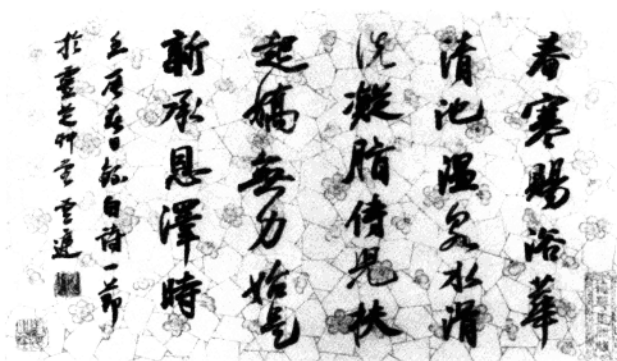 春寒賜浴華
清池溫泉水滑
洗凝脂侍兒扶
起嬌無力始是
新承恩澤時
日錄白詩一節
於靈芝草堂雲遞